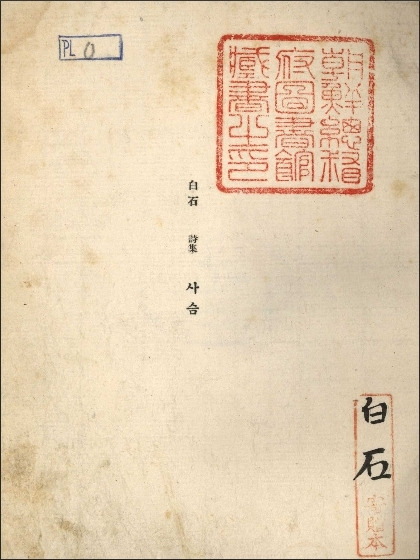 PL 0
朝鮮總督
府圖書館
藏書之印
白石 詩集 사슴
白石
寄贈本